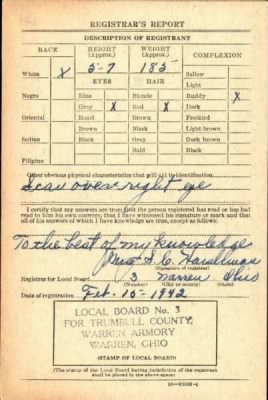 REGISTRAR'S REPORT
DESCRIPTION OF REGISTRANT
RACE HEIGHT (Approx.) WEIGHT (Approx.) COMPLEXION
White X 5-7 185 Sallow
EYES HAIR Light
Negro Blue Blonde Ruddy X
Gray X Red X Dark
Oriental Hazel Brown Freckled
Brown Black Light brown
Indian Black Gray Dark brown
Bald Black
Filipino
Other obvious physical characteristics that will aid in identification
Scar over right eye
I certify that my answers are true; that the person registered has read or has had
read to him his own answers; that I have witnessed his signature or mark and that
all of his answers of which I have knowledge are true, except as follows:
To the best of my knowledge
(Signature of registrar)
Registrar for Local Board 3 Warren Ohio
(Number) (City or county) (State)
Date of registration Feb. 15-1942
LOCAL BOARD No. 3
FOR TRUMBULL COUNTY
WARREN ARMORY
WARREN, OHIO
(STAMP OF LOCAL BOARD)
(The stamp of the Local Board having jurisdiction of the registrant
shall be placed in the above space.)